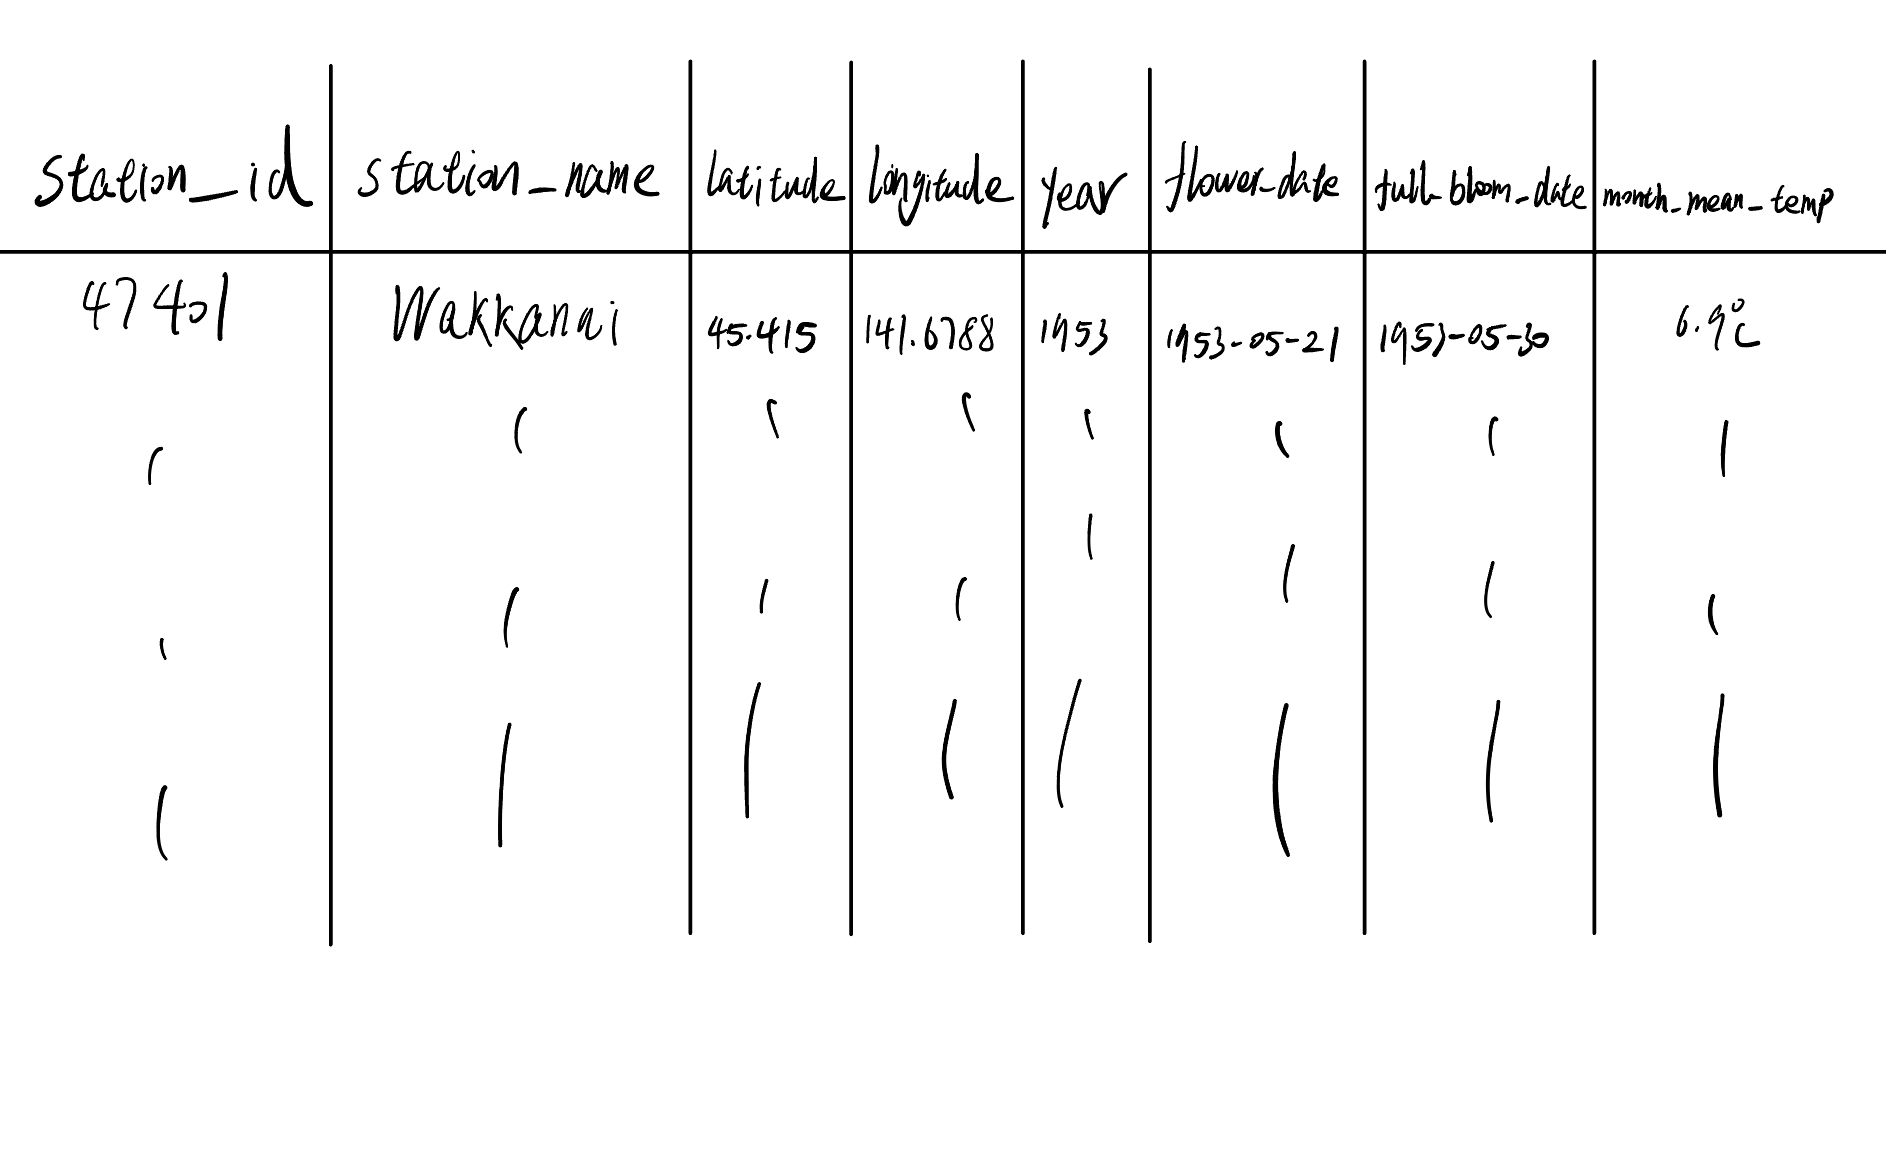 station_id station_name latitude longitude year flower_date full_bloom_date month_mean_temp
47401 Wakkanai 45.415 141.6788 1953 1953-05-21 1953-05-30 6.9°C